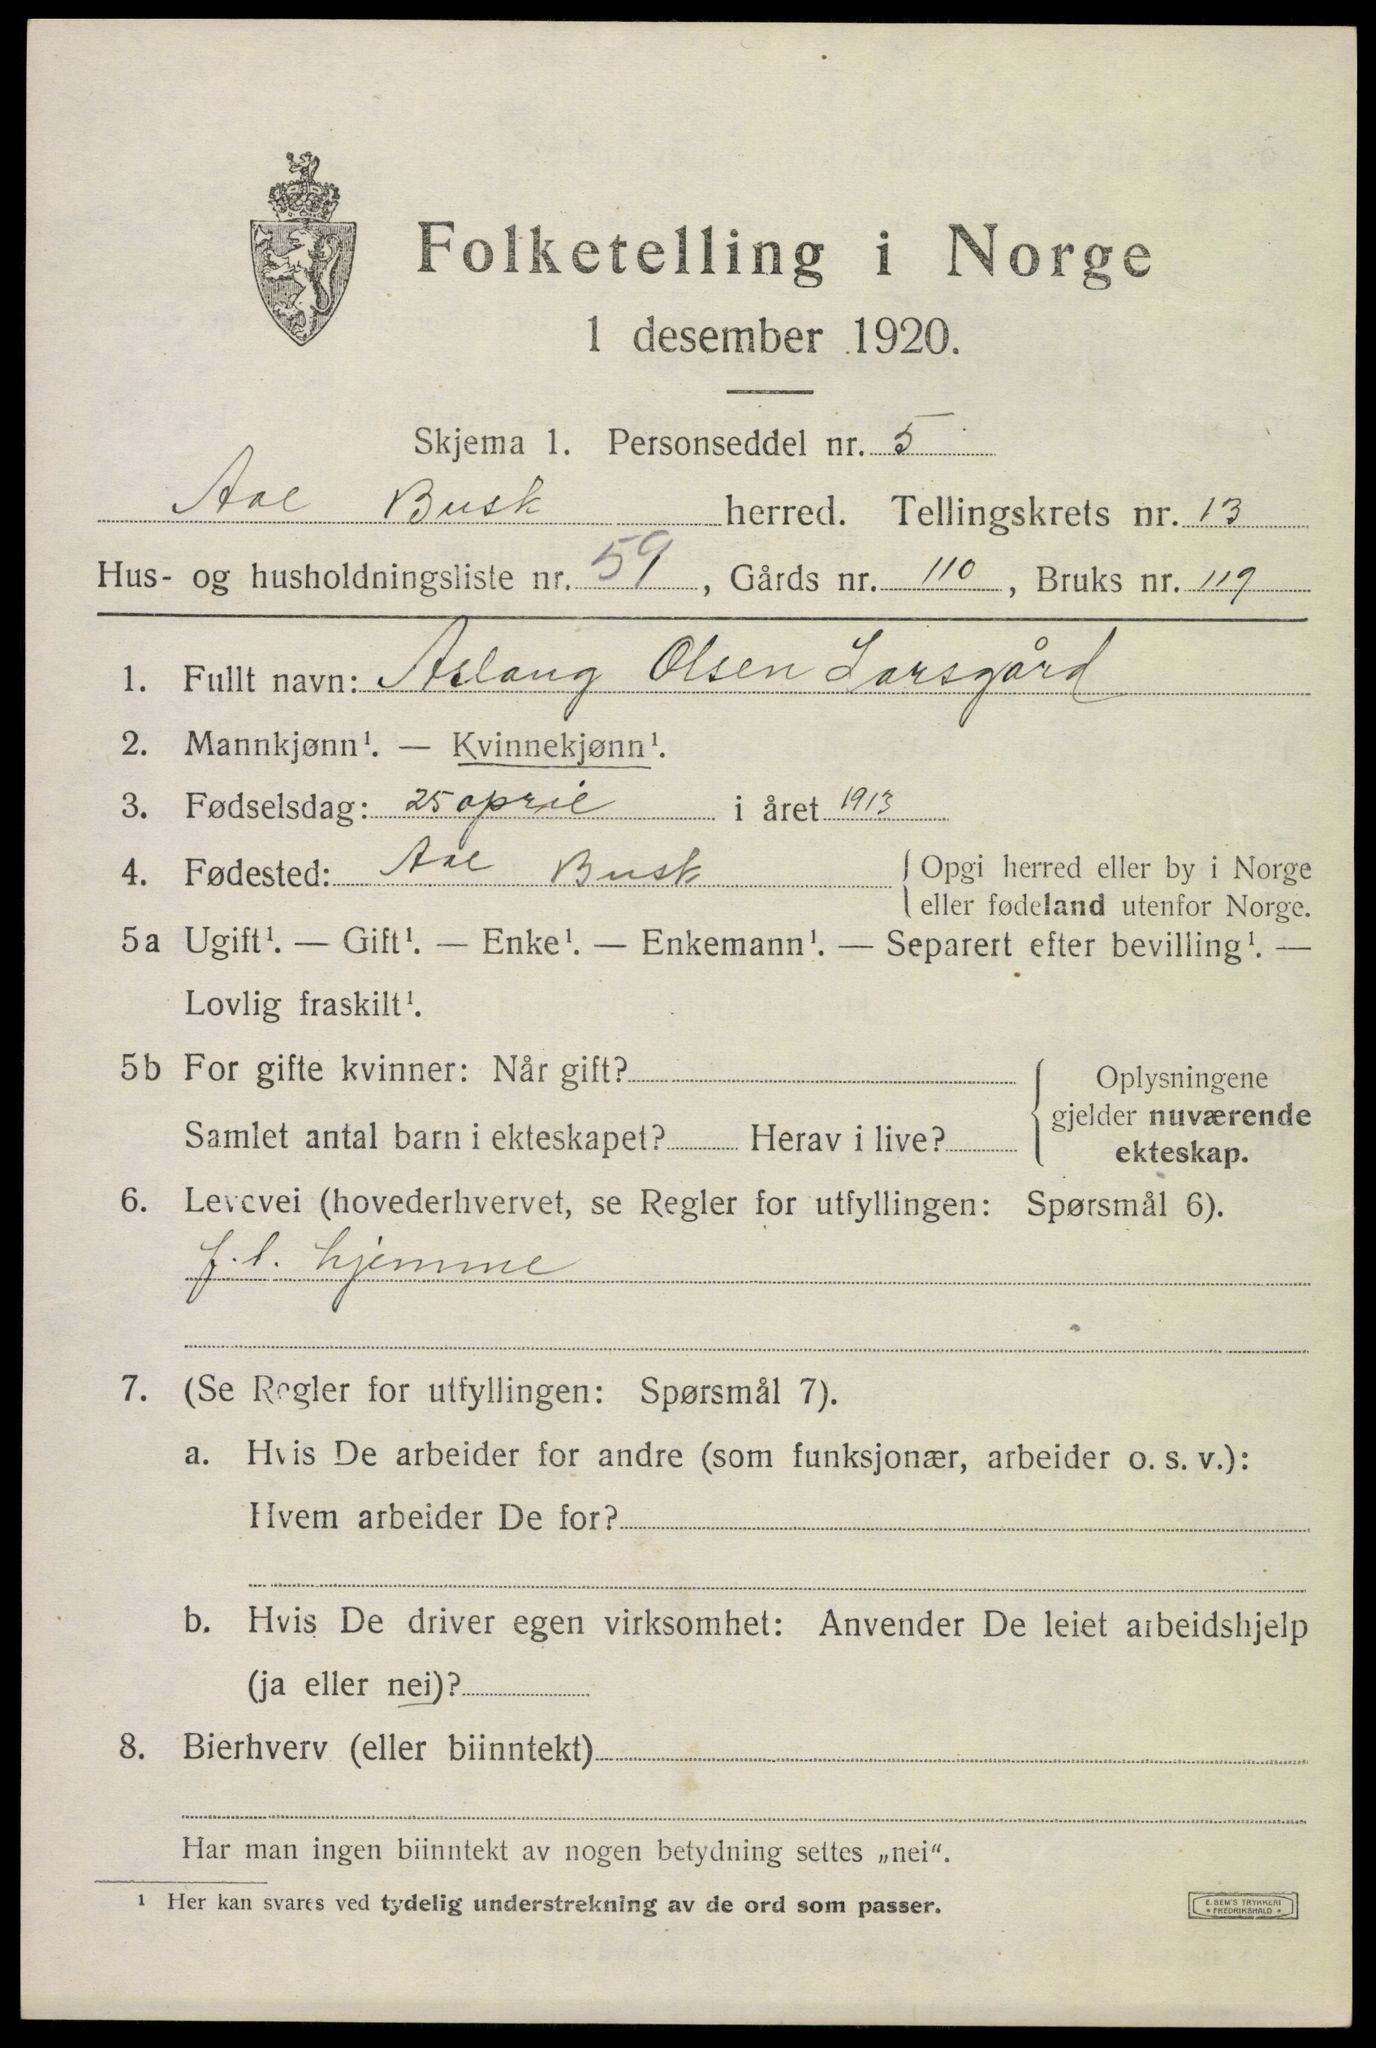 Folketelling i Norge
1 desember 1920.
Skjema 1. Personseddel nr. 5
Aal Busk herred. Tellingskrets nr. 13
Hus- og husholdningsliste nr. 59, Gårds nr. 110, Bruks nr. 119
1. Fullt navn: Aslaug Olsen Larsgård
2. Mannkjønn¹. — Kvinnekjønn¹.
3. Fødselsdag: 25 april i året 1913
4. Fødested: Aal Busk { Opgi herred eller by i Norge
eller fødeland utenfor Norge.
5a Ugift¹. — Gift¹. — Enke¹. — Enkemann¹. — Separert efter bevilling¹. —
Lovlig fraskilt¹.
5b For gifte kvinner: Når gift?
Samlet antal barn i ekteskapet? Herav i live?
{ Oplysningene
gjelder nuværende
ekteskap.
6. Levevei (hovederhvervet, se Regler for utfyllingen: Spørsmål 6).
f.l. hjemme
7. (Se Regler for utfyllingen: Spørsmål 7).
a. Hvis De arbeider for andre (som funksjonær, arbeider o. s. v.):
Hvem arbeider De for?
b. Hvis De driver egen virksomhet: Anvender De leiet arbeidshjelp
(ja eller nei)?
8. Bierhverv (eller biinntekt)
Har man ingen biinntekt av nogen betydning settes „nei“.
¹ Her kan svares ved tydelig understrekning av de ord som passer.
E. SEM'S TRYKKERI
* FREDRIKSHALD *